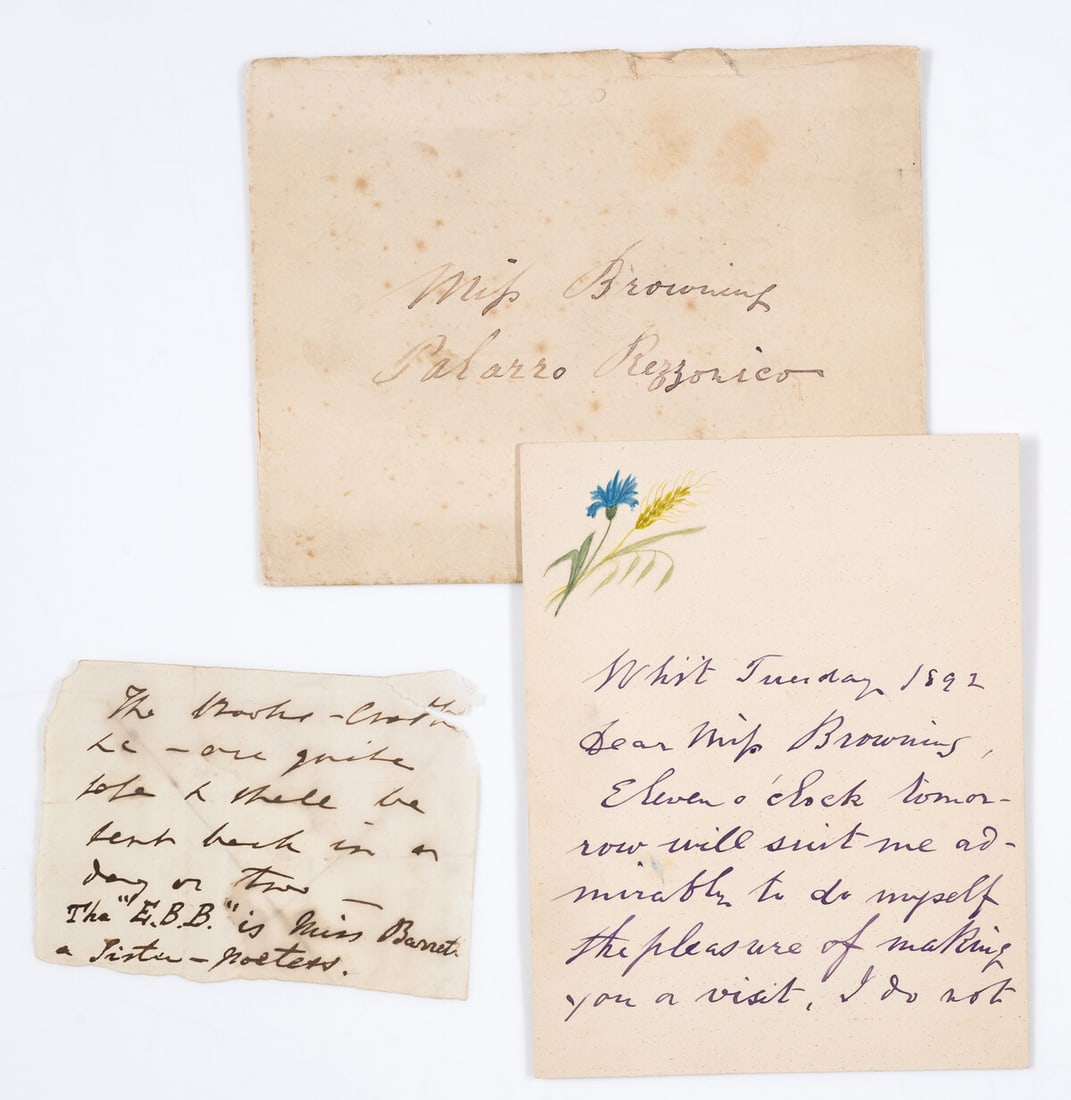 Miss Browning
Palazzo Rezzonico
Whit Tuesday 1892
Dear Miss Browning,
Eleven o'clock tomor-
row will suit me ad-
mirably to do myself
the pleasure of making
you a visit, I do not
The books -
&c - are quite
safe & shall be
sent back in a
day or two -
The "E.B.B." is Miss Barrett
a Sister - poetess.